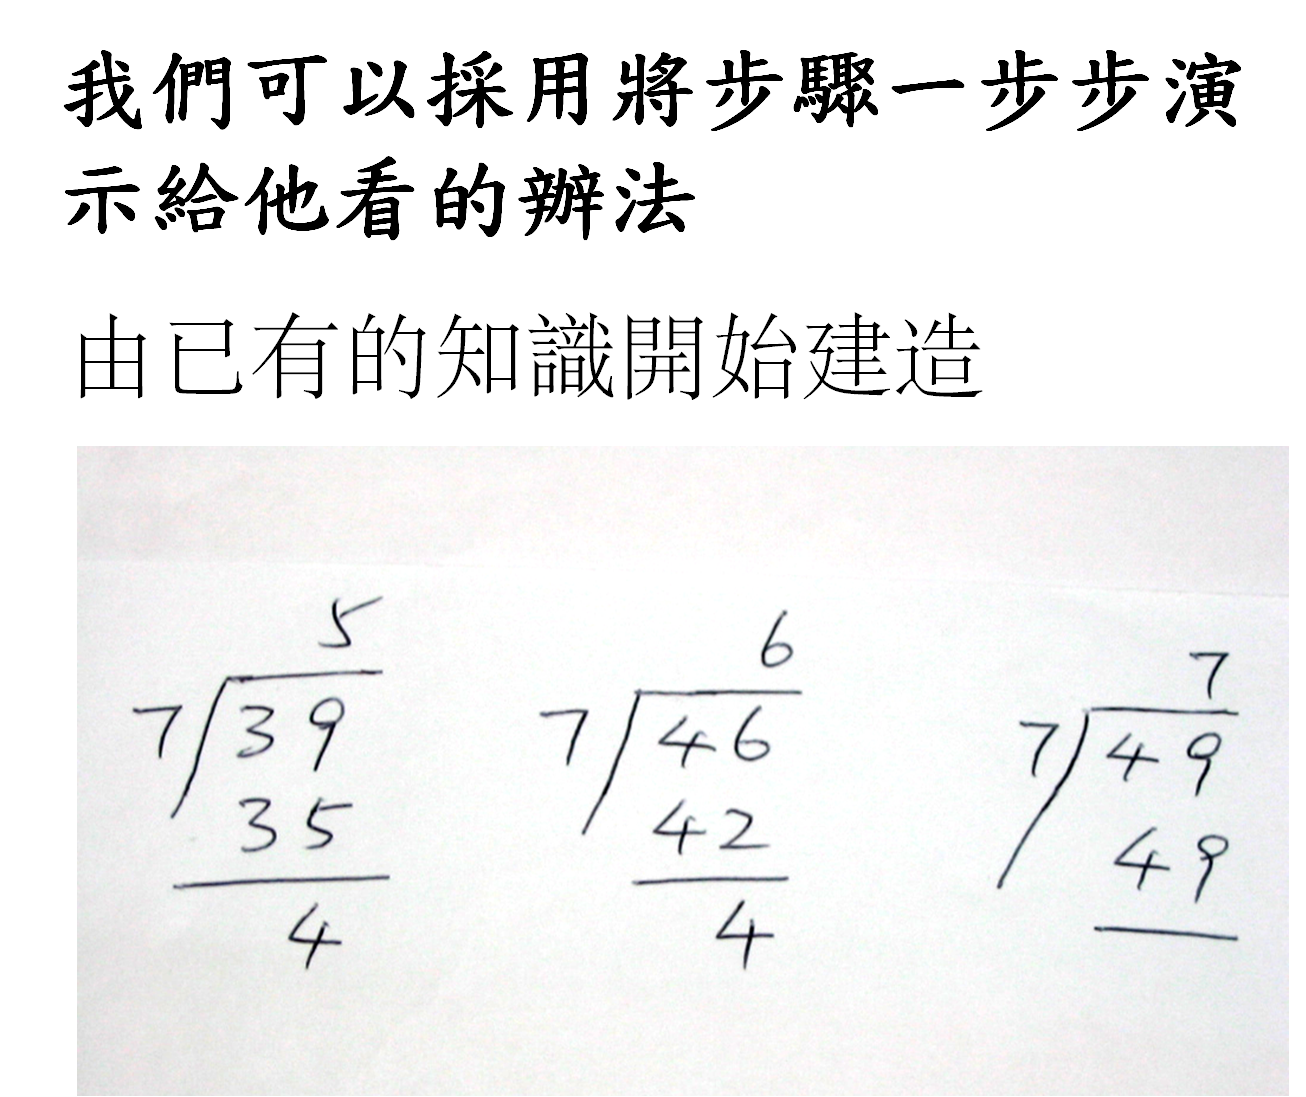 我們可以採用將步驟一步步演
示給他看的辦法
由已有的知識開始建造
5 6 7
7 39 7 46 7 49
35 42 49
4 4